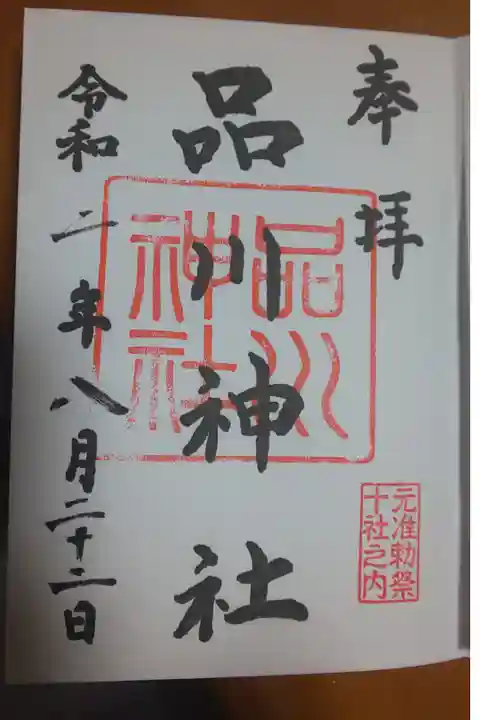 奉拝
品川神社
品川
神社
元准勅祭
十社之内
令和二年八月二十二日